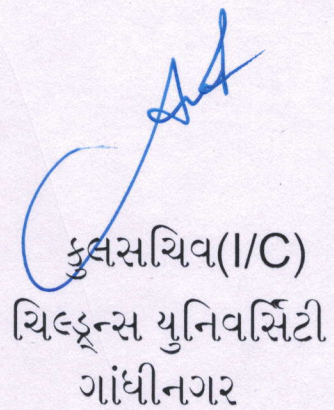 કુલસચિવ(I/C)
ચિલ્ડ્રન્સ યુનિવર્સિટી
ગાંધીનગર